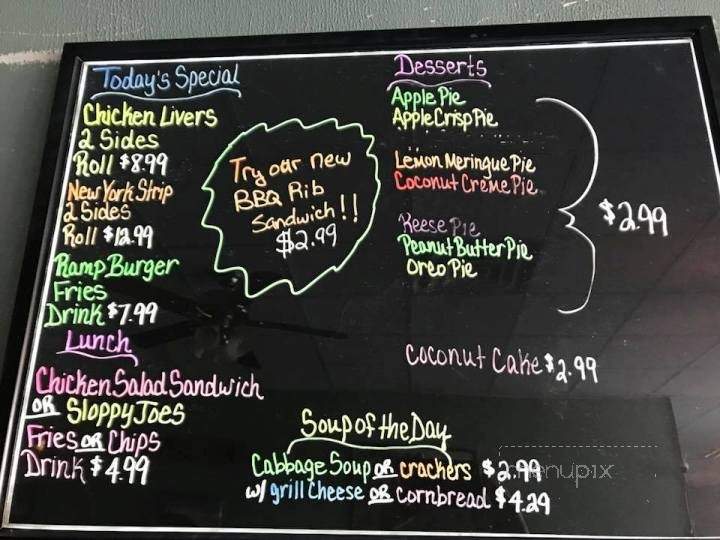 Today's Special
Chicken Livers
2 Sides
Roll $8.99
New York Strip
2 Sides
Roll $12.99
Ramp Burger
Fries
Drink $7.99
Lunch
Chicken Salad Sandwich
OR Sloppy Joes
Fries OR Chips
Drink $4.99
Try our new
BBQ Rib
Sandwich!!
$2.99
Desserts
Apple Pie
Apple Crisp Pie
Lemon Meringue Pie
Coconut Creme Pie
Reese Pie
Peanut Butter Pie
Oreo Pie
$2.99
Coconut Cake $2.99
Soup of the Day
Cabbage Soup OR crackers $2.99
w/ grill cheese OR Cornbread $4.29
menupix